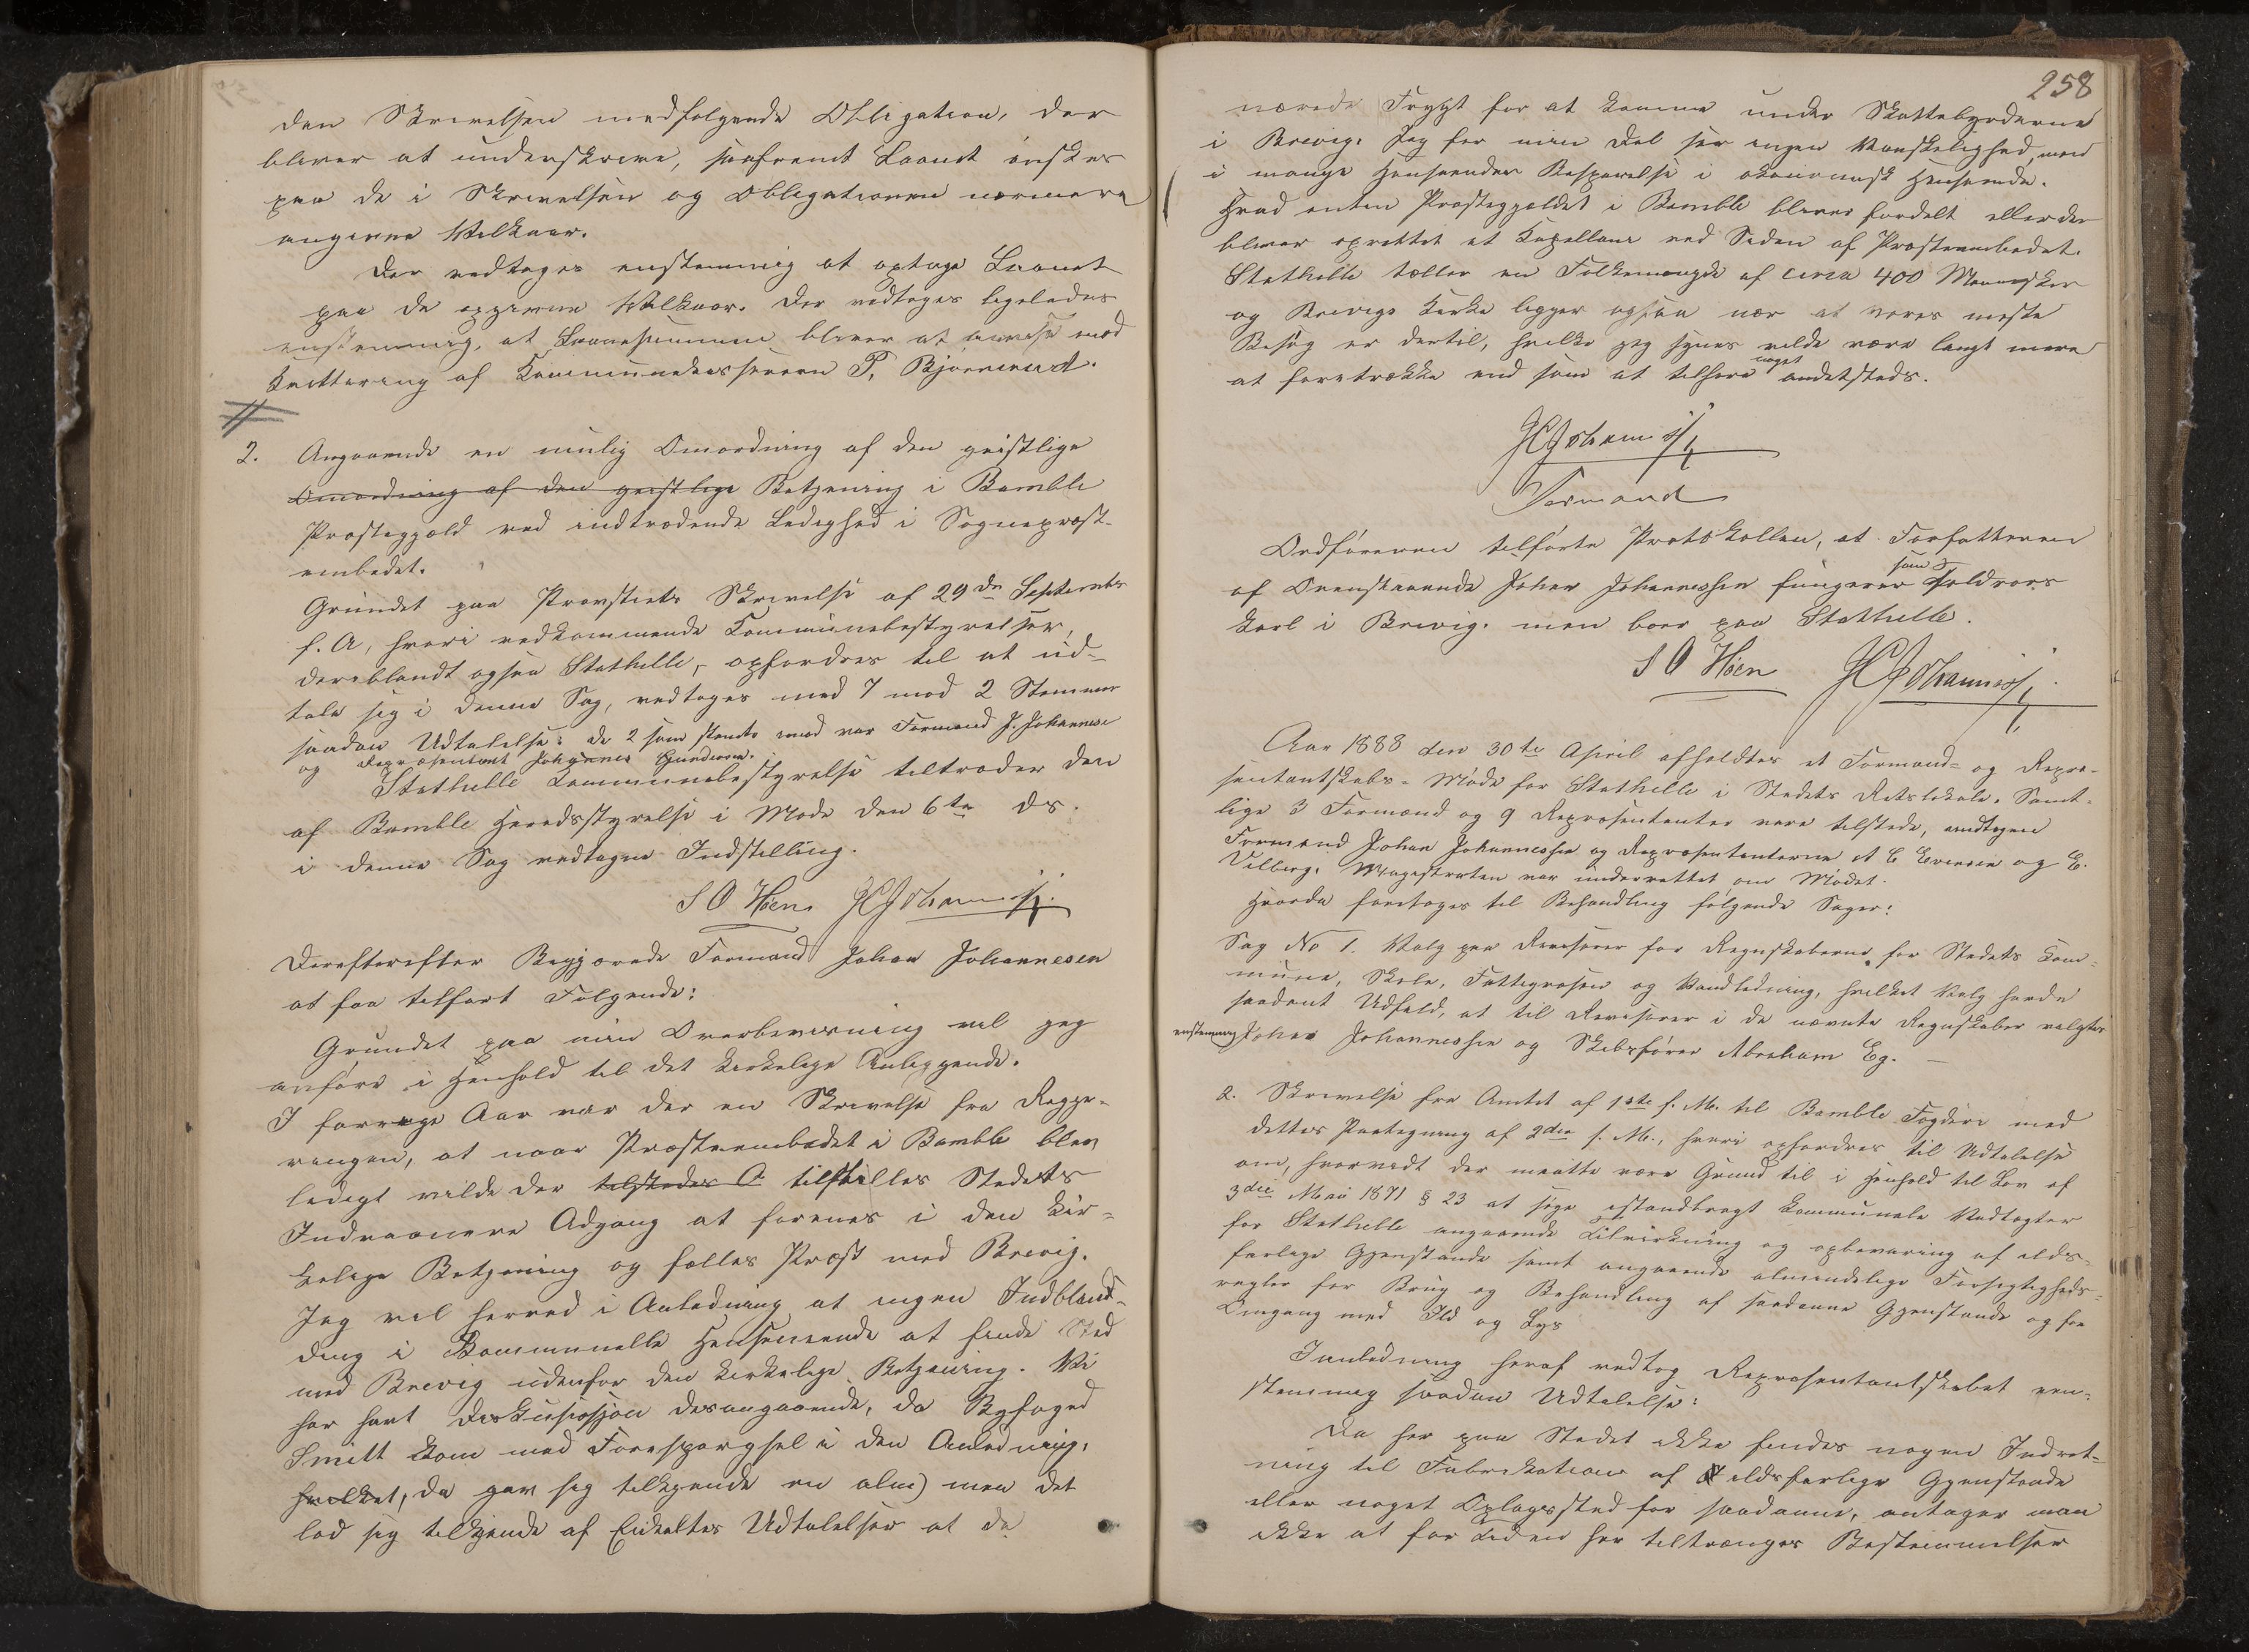 den Skrivelsen medfølgende Obligation, der
bliver at underskrive, saafremt Laanet ønskes
paa de i Skrivelsen og Obligationen nærmere
angivne Vilkaar.
Der vedtages enstemmig at optage Laanet
paa de opgivne Vilkaar. Der vedtages ligeledes
enstemmig, at Laanesummen bliver at anvise mod
Kvittering af Kommunekassereren P. Bjørnerud.
2. Angaaende en mulig Omordning af den geistlige
Omordning af den geistlige Betjening i Bamble
Præstegjæld ved indtrædende Ledighed i Sognepræst-
embedet.
Grundet paa Provstiets Skrivelse af 29de Septembr
f. A, hvori vedkommende Kommunebestyrelser,
deriblandt ogsaa Stathelle, opfordres til at ud-
tale sig i denne Sag, vedtages med 7 mod 2 Stemmer
saadan Udtalelse: de 2 som stemte mod var Formand J. Johannese
og Repræsentant Johannes Gundersen.
Stathelle Kommunebestyrelse tiltræder den
af Bamble Heredsstyrelse i Møde den 6te ds.
i denne Sag vedtagne Indstilling.
S O Høen HCJohanness
Derefterefter Begjærede Formand Johan Johannesen
at faa tilført Følgende:
Grundet paa min Overbevisning vil jeg
anføre i Henhold til det kirkelige Anliggende.
I forrige Aar var der en Skrivelse fra Regje-
ringen, at naar Præsteembedet i Bamble blev
ledigt vilde der tilstedes O tilstilles Stedets
Indvaanere Adgang at forenes i den kir-
kelige Betjening og fælles Præst med Brevig.
Jeg vil herved i Anledning at ingen Indbland-
ding i Kommunelle Henseeende at finde Sted
med Brevig udenfor den kirkelige Betjening. Vi
har havt Diskusisjon desangaaende, da Byfoged
Smitt kom med Forespørgsel i den Anledning,
hvilket, da gav sig tilkjende en alm) men det
lod sig tilkjende af Enkeltes Udtalelser at de
258
nærede Frygt for at komme under Skattebyrderne
i Brevig. Jeg for min Del ser ingen Vanskelighed, men
i mange Henseender Besparelse i økonomisk Henseende.
Hvad enten Præstegjældet i Bamble bliver fordelt eller der
bliver oprettet et Kapellani ved Siden af Præsteembedet.
Stathelle tæller en Folkemængde af circa 400 Mennesker
og Brevigs Kirke ligger ogsaa nær at vores meste
Besøg er dertil, hvilke jeg synes vilde være langt mere
noget
at foretrække end som at tilhøre andetsteds.
HCJohanness
Formand
Ordføreren tilførte Protokollen, at Forfatteren
som
af Ovenstaaende Johan Johannessen fungerer Toldroers
karl i Brevig. men boer paa Stathelle.
S O Høen HCJohanness
Aar 1888 den 30te April afholdtes et Formand- og Repræ-
sentantskabs-Møde for Stathelle i Stedets Retslokale. Samt-
lige 3 Formænd og 9 Repræsentanter vare tilstede, undtagen
Formand Johan Johannessen og Repræsentanterne A E Evensen og E.
Vilberg. Magistraten var underrettet om Mødet.
Hvorda foretoges til Behandling følgende Sager:
Sag No 1. Valg paa Revisorer for Regnskaberne for Stedets Kom-
mune, Skole, Fattigvæsen og Vandledning, hvilket Valg havde
saadant Udfald, at til Revisorer i de nævnte Regnskaber valgtes
enstemmig Johan Johannessen og Skibsfører Abraham Eg. —
2. Skrivelse fra Amtet af 1ste f. M. til Bamble Fogderi med
dettes Paategning af 2den s. M., hvori opfordres til Udtalelse
om, hvorvidt der maatte være Grund til i Henhold til Lov af
3die Mai 1871 § 23 at søge istandbragt kommunale Vedtægter
for Stathelle angaaende Tilvirkning og opbevaring af ilds-
farlige Gjenstande samt angaaende almindelige Forsigtigheds-
regler for Brug og Behandling af saadanne Gjenstande og for
Omgang med Ild og Lys
Ianledning heraf vedtog Repræsentantskabet een-
stemmig saadan Udtalelse:
Da her paa Stedet ikke findes nogen Indret-
ning til Fabrikation af ildsfarlige Gjenstande
eller noget Oplagssted for saadanne, antager man
ikke at for Tiden her tiltrænges Bestemmelser